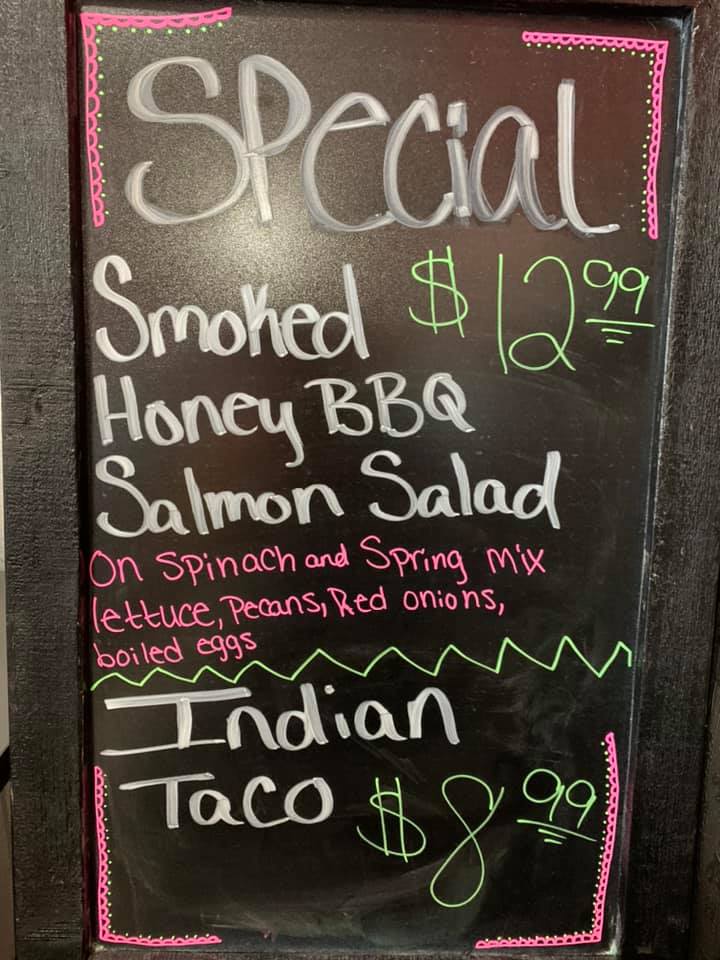 Special
Smoked $12.99
Honey BBQ
Salmon Salad
On Spinach and Spring Mix
lettuce, Pecans, Red onions,
boiled eggs
Indian
Taco $8.99